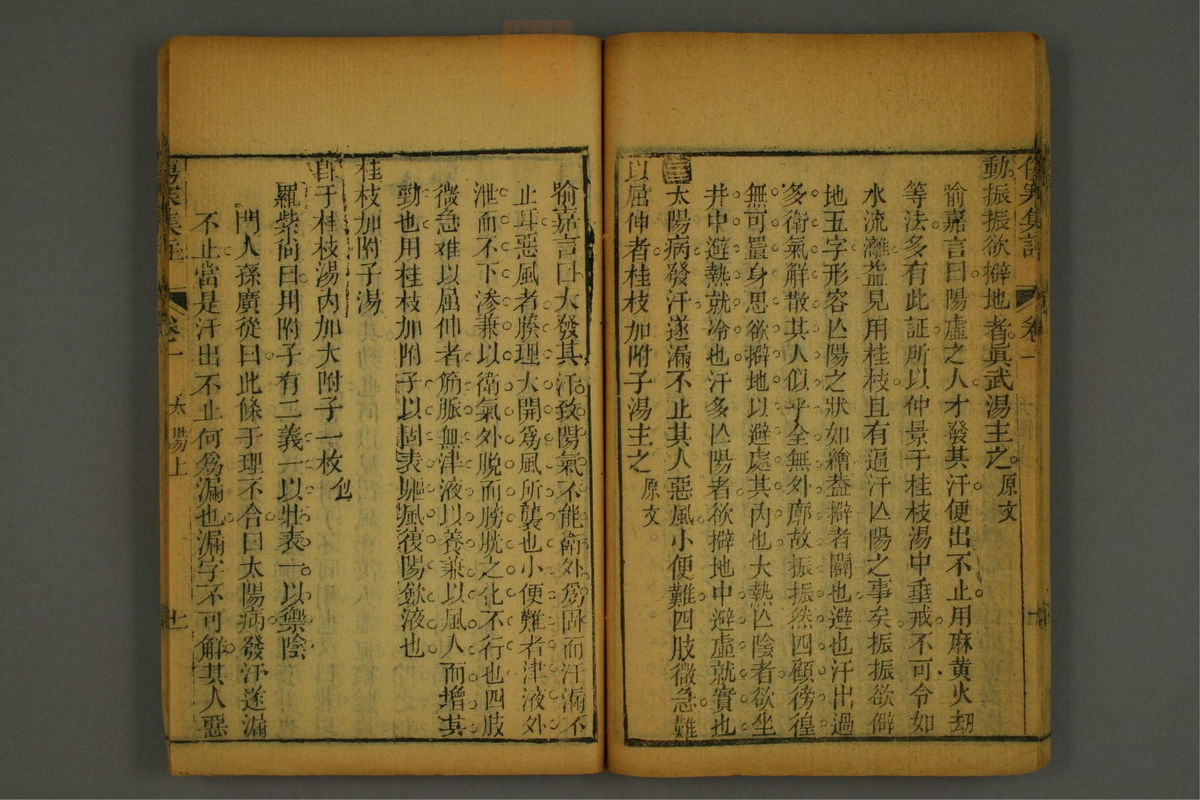 傷寒集註 卷一
動振振欲擗地者眞武湯主之原文
喻嘉言曰陽虛之人才發其汗便出不止用麻黃火刼
等法多有此証所以仲景于桂枝湯中垂戒不可令如
水流漓益見用桂枝且有逼汗亾陽之事矣振振欲僻
地五字形容亾陽之狀如繪葢擗者闢也避也汗出過
多衛氣解散其人似乎全無外廓故振振然四顧徬徨
無可置身思欲擗地以避處其內也大熱亾陰者欲坐
井中避熱就冷也汗多亾陽者欲擗地中避虛就實也
太陽病發汗遂漏不止其人惡風小便難四肢微急難
以屈伸者桂枝加附子湯主之原文
喻嘉言曰大發其汗致陽氣不能衛外爲固而汗漏不
止耳惡風者腠理大開爲風所襲也小便難者津液外
泄而不下滲兼以衛氣外脫而膀胱之化不行也四肢
微急难以屈伸者筋脈無津液以養兼以風人而增其
勁也用桂枝加附子以固表驅風復陽斂液也
桂枝加附子湯
卽于桂枝湯內加大附子一枚
羅紫尙曰用附子有二義一以壯表一以禦陰
門人孫廣從曰此條于理不合曰太陽病發汗遂漏
不止當是汗出不止何爲漏也漏字不可解其人惡
傷寒集註 卷一 太陽上 十一